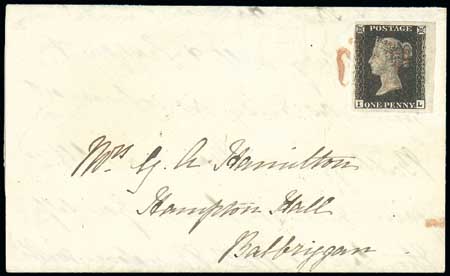 POSTAGE
I L
ONE PENNY
Mrs G. A. Hamilton
Hampton Hall
Balbriggan